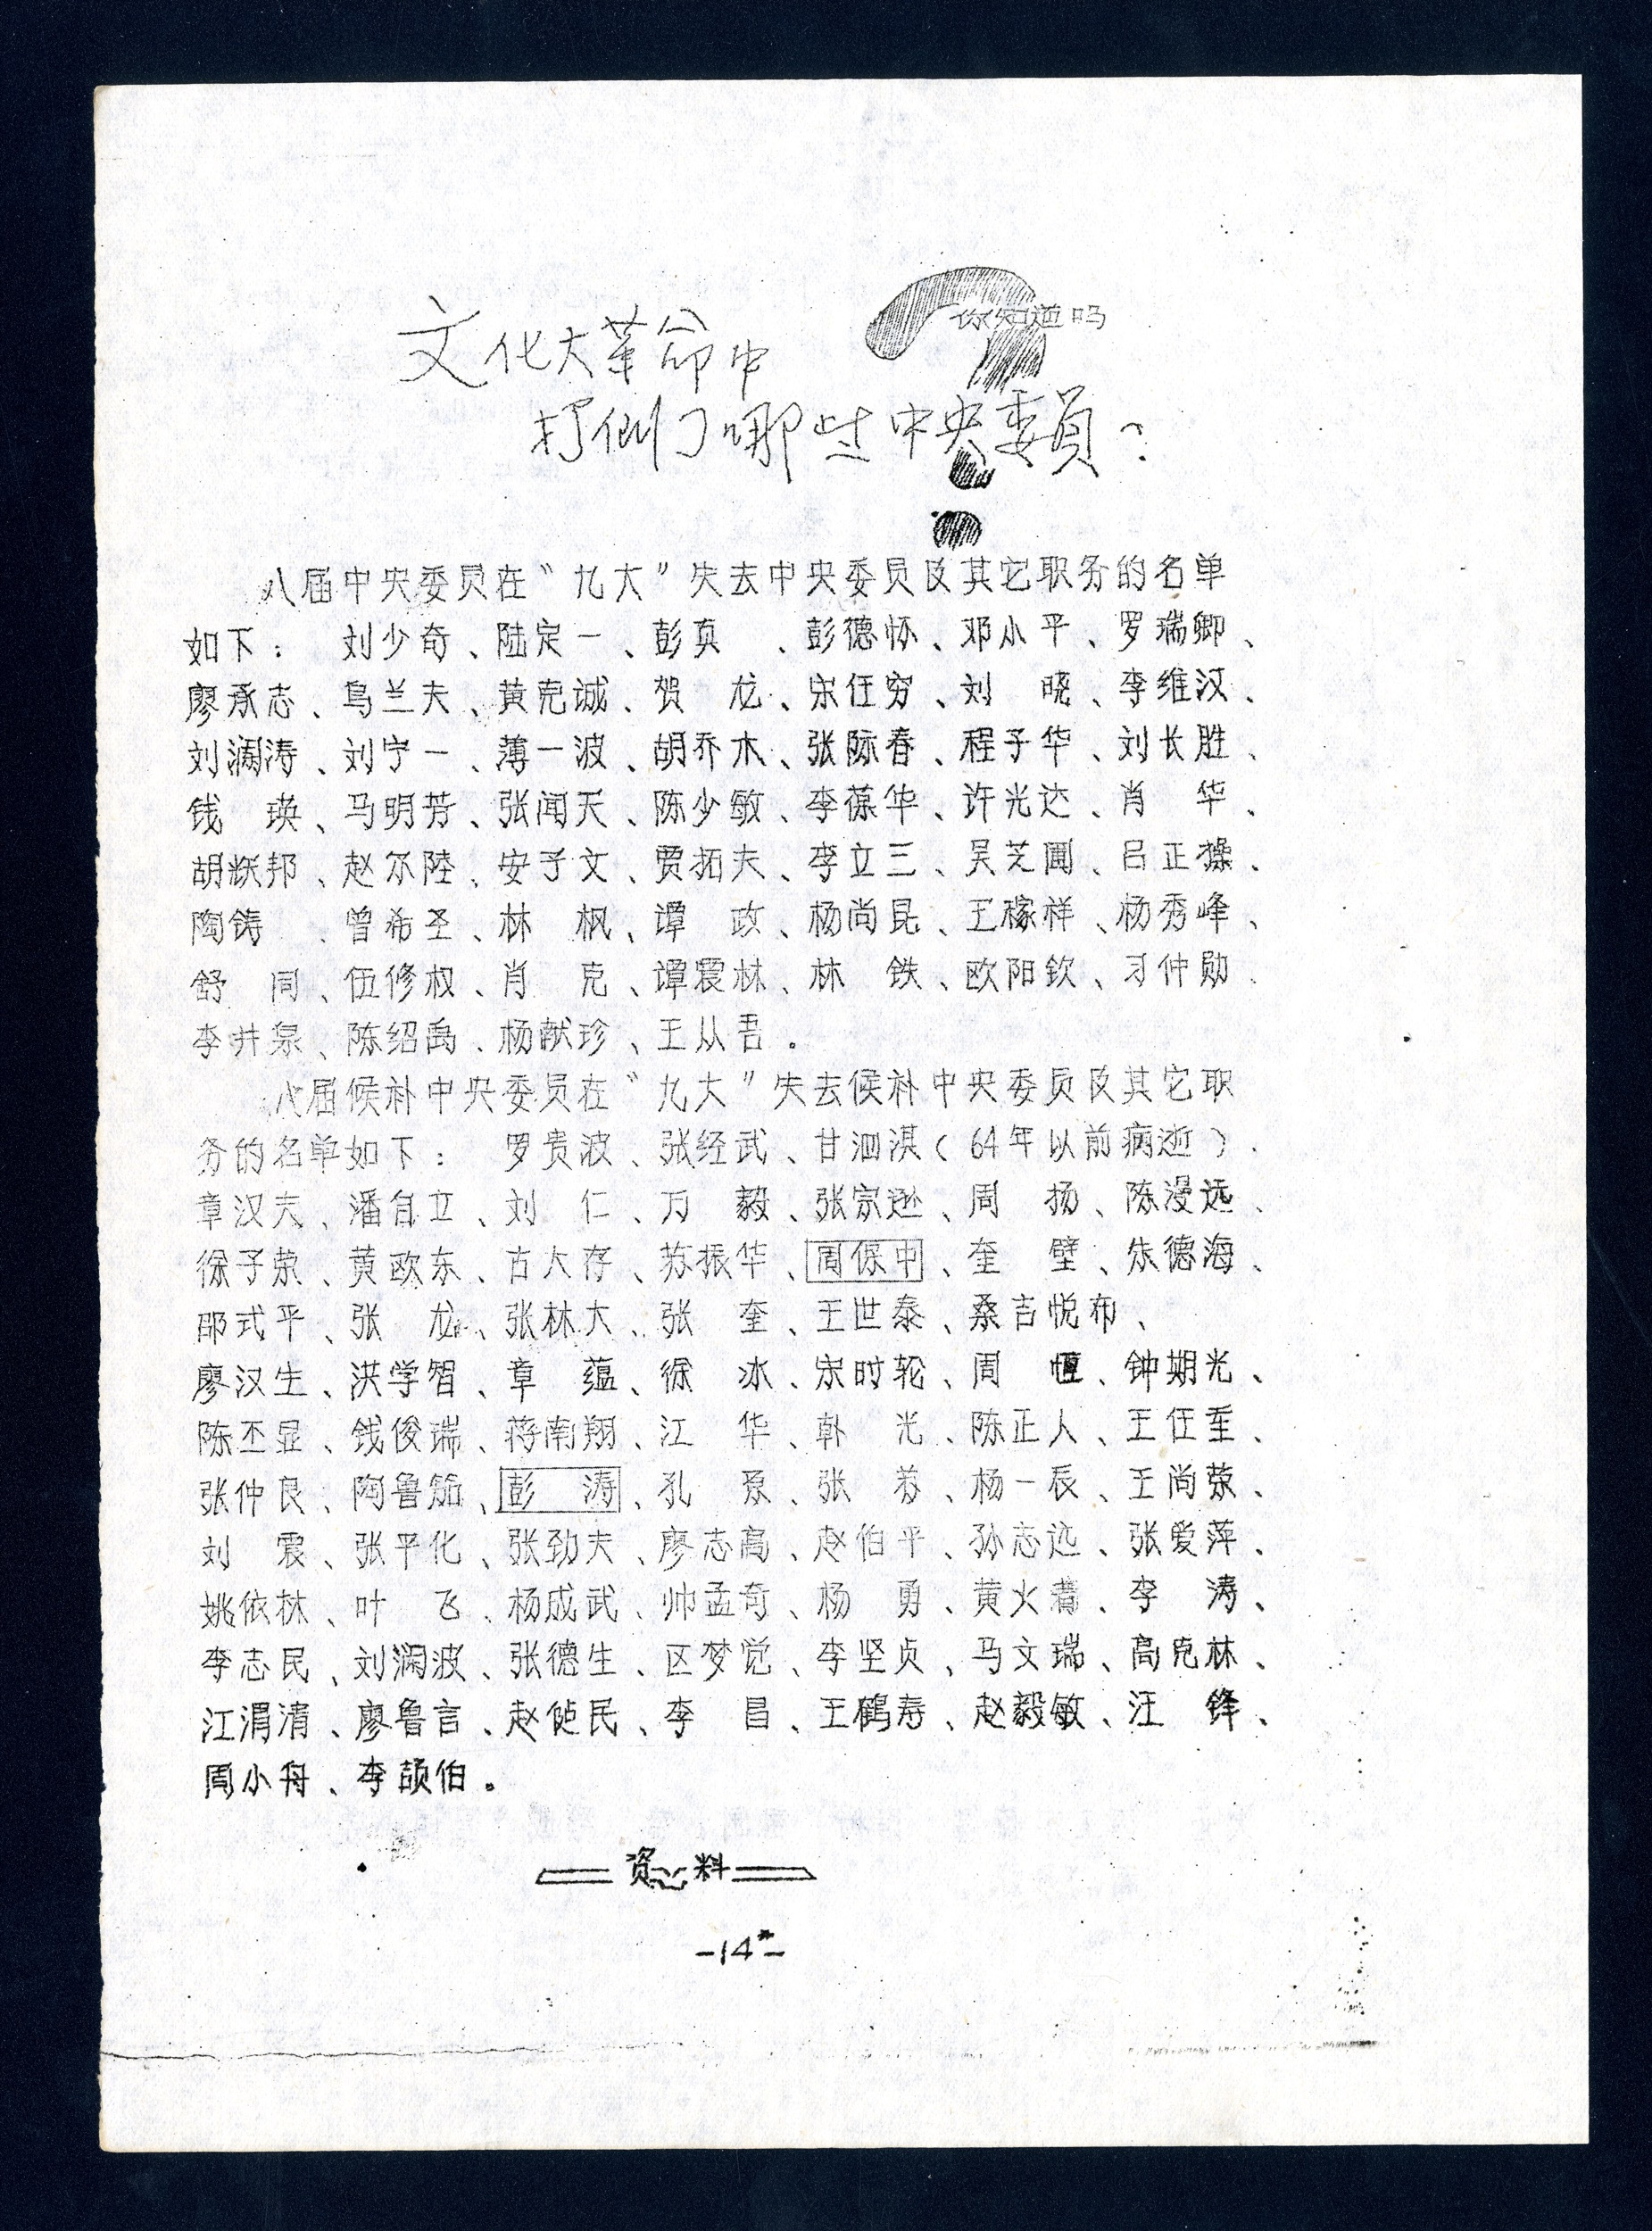 你知道吗
文化大革命中
打倒了哪些中央委員？
八届中央委员在“九大”失去中央委员及其它职务的名单
如下： 刘少奇、陆定一、彭真 、彭德怀、邓小平、罗瑞卿、
廖承志、乌兰夫、黄克诚、贺 龙、宋任穷、刘 晓、李维汉、
刘澜涛、刘宁一、薄一波、胡乔木、张际春、程子华、刘长胜、
钱 瑛、马明芳、张闻天、陈少敏、李葆华、许光达、肖 华、
胡跃邦、赵尔陸、安子文、贾拓夫、李立三、吴芝圃、吕正操、
陶铸 、曾希圣、林 枫、谭 政、杨尚昆、王稼祥、杨秀峰、
舒 同、伍修权、肖 克、谭震林、林 铁、欧阳钦、习仲勋、
李井泉、陈绍禹、杨献珍、王从吾。
八届候补中央委员在“九大”失去候补中央委员及其它职
务的名单如下： 罗贵波、张经武、甘泗淇（64年以前病逝）、
章汉夫、潘自立、刘 仁、万 毅、张宗逊、周 扬、陈漫远、
徐子荣、黄欧东、古大存、苏振华、周保中、奎 璧、朱德海、
邵式平、张 龙、张林大、张 奎、王世泰、桑吉悦布、
廖汉生、洪学智、章 蕴、徐 冰、宋时轮、周 恒、钟期光、
陈丕显、钱俊瑞、蒋南翔、江 华、韩 光、陈正人、王任重、
张仲良、陶鲁笳、彭 涛、孔 原、张 苏、杨一辰、王尚荣、
刘 震、张平化、张劲夫、廖志高、赵伯平、孙志远、张爱萍、
姚依林、叶 飞、杨成武、帅孟奇、杨 勇、黄火青、李 涛、
李志民、刘澜波、张德生、区梦觉、李坚贞、马文瑞、高克林、
江渭清、廖鲁言、赵健民、李 昌、王鹤寿、赵毅敏、汪 锋、
周小舟、李颉伯。
资料
-14-